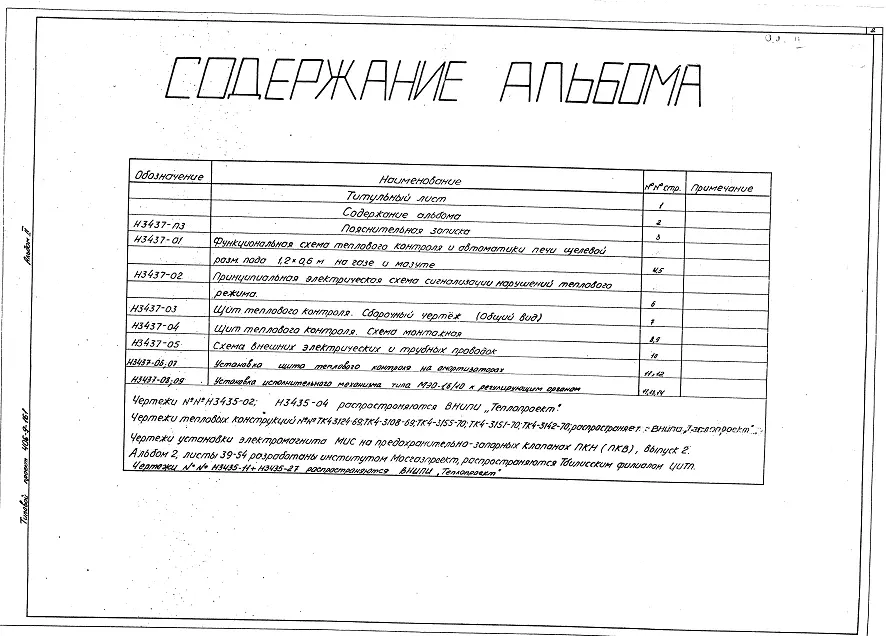 2
СОДЕРЖАНИЕ АЛЬБОМА
Обозначение Наименование №№ стр. Примечание
Титульный лист 1
Содержание альбома 2
Н3437-ПЗ Пояснительная записка 3
Н3437-01 Функциональная схема теплового контроля и автоматики печи щелевой
разм. пода 1,2×0,6 м на газе и мазуте 4,5
Н3437-02 Принципиальная электрическая схема сигнализации нарушений теплового
режима. 6
Н3437-03 Щит теплового контроля. Сборочный чертёж (Общий вид) 7
Н3437-04 Щит теплового контроля. Схема монтажная 8,9
Н3437-05 Схема внешних электрических и трубных проводок 10
Н3437-06; 07 Установка щита теплового контроля на амортизаторах 11,12
Н3437-08; 09 Установка исполнительного механизма типа МЭО к регулирующим органам 
Чертежи №№ Н3435-02; Н3435-04 распространяются ВНИПИ „Теплопроект".
Чертежи тепловых конструкций №№ ТК4-3124-69; ТК4-3108-69; ТК4-3155-70; ТК4-3151-70; ТК4-3142-70; распространяет ВНИПИ „Теплопроект"
Чертежи установки электромагнита МИС на предохранительно-запорных клапанах ПКН (ПКВ), выпуск 2.
Альбом 2, листы 39-54 разработаны институтом Мосгазпроект, распространяются Тбилисским филиалом ЦИТП.
Чертежи №№ Н3435-11÷Н3435-27 распространяются ВНИПИ „Теплопроект"
Альбом II
Типовой проект 406-9-161